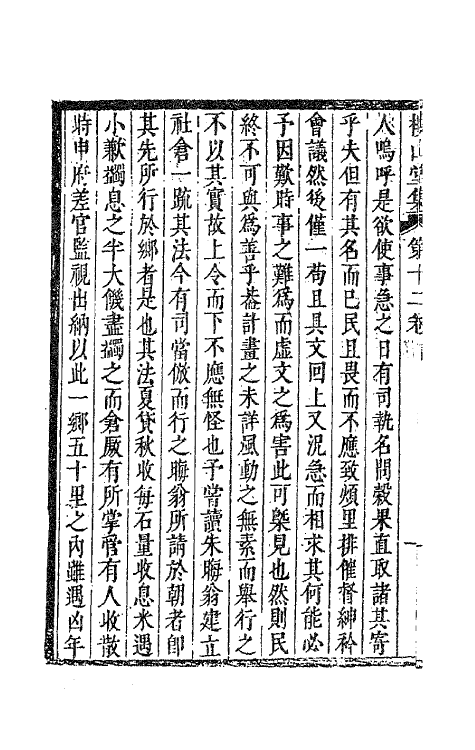 樓山堂集 第十二卷
人嗚呼是欲使事急之日有司執名問穀果直取諸其寄
乎夫但有其名而已民且畏而不應致煩里排催督紳衿
會議然後僅一苟且具文回上又況急而相求其何能必
予因歎時事之難爲而虛文之爲害此可槩見也然則民
終不可與爲善乎葢計畫之未詳風動之無素而舉行之
不以其實故上令而下不應無怪也予嘗讀朱晦翁建立
社倉一疏其法今有司當倣而行之晦翁所請於朝者卽
其先所行於鄉者是也其法夏貸秋收每石量收息米遇
小歉蠲息之半大饑盡蠲之而倉厫有所掌管有人收散
時申府差官監視出納以此一鄉五十里之內雖遇凶年